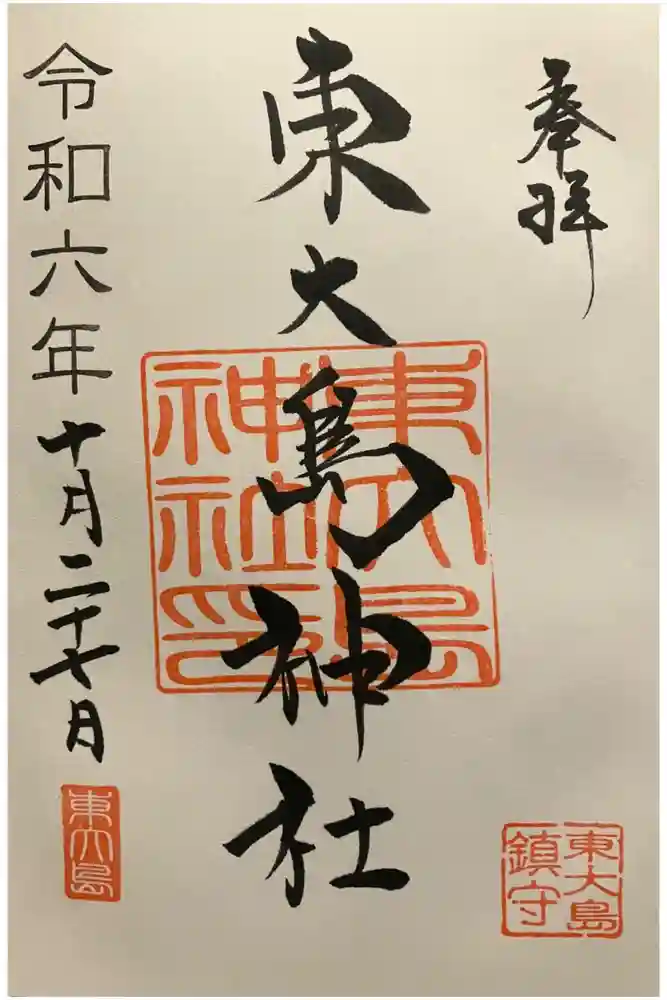 奉拝
東大島神社
東大島神社印
東大島
鎮守
令和六年十月二十七日
東大島